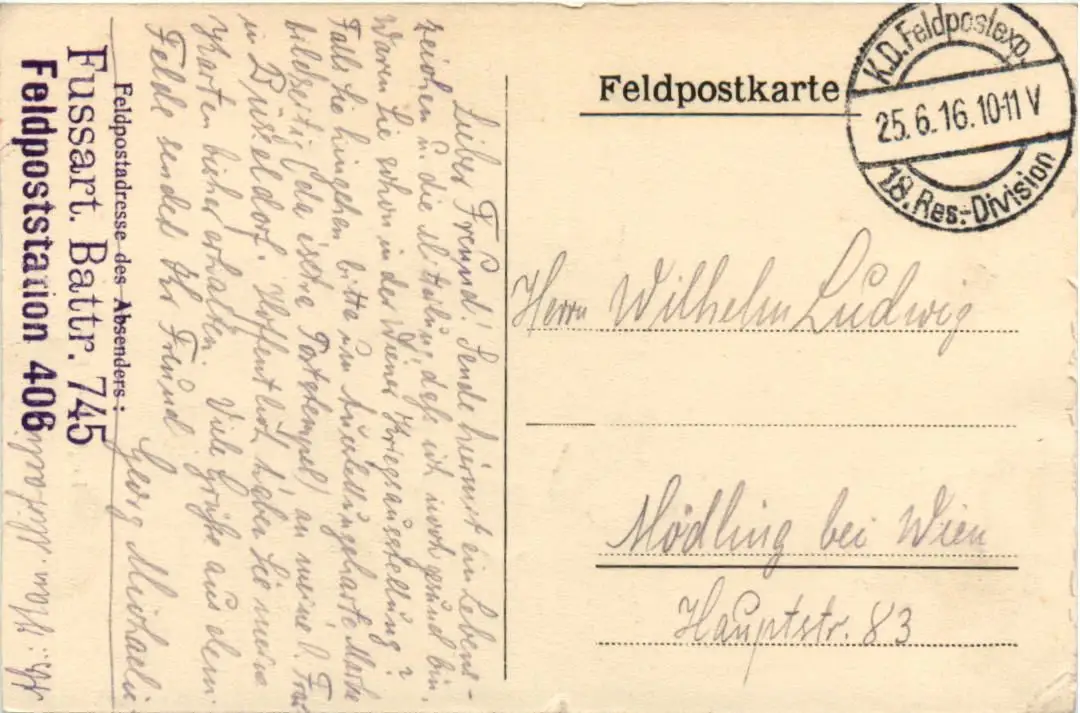 Feldpostkarte
K.D. Feldpostexp.
25.6.16.10-11 V
18. Res.-Division
Herrn Wilhelm Ludwig
Mödling bei Wien
Hauptstr. 83
Lieber Freund! Sende hiermit ein Lebens-
zeichen u. die Mitteilung, daß ich noch gesund bin.
Waren Sie schon in der Wiener Kriegsausstellung?
Falls Sie hingehen bitte um Ausstellungskarte Marke
bildseitig (da extra Poststempel) an meine l. Frau
in Düsseldorf. Hoffentlich haben Sie meine
Karten bisher erhalten. Viele Grüße aus dem
Felde sendet Ihr Freund
Georg Michaelis
Feldpostadresse des Absenders:
Fussart. Battr. 745
Feldpoststation 406